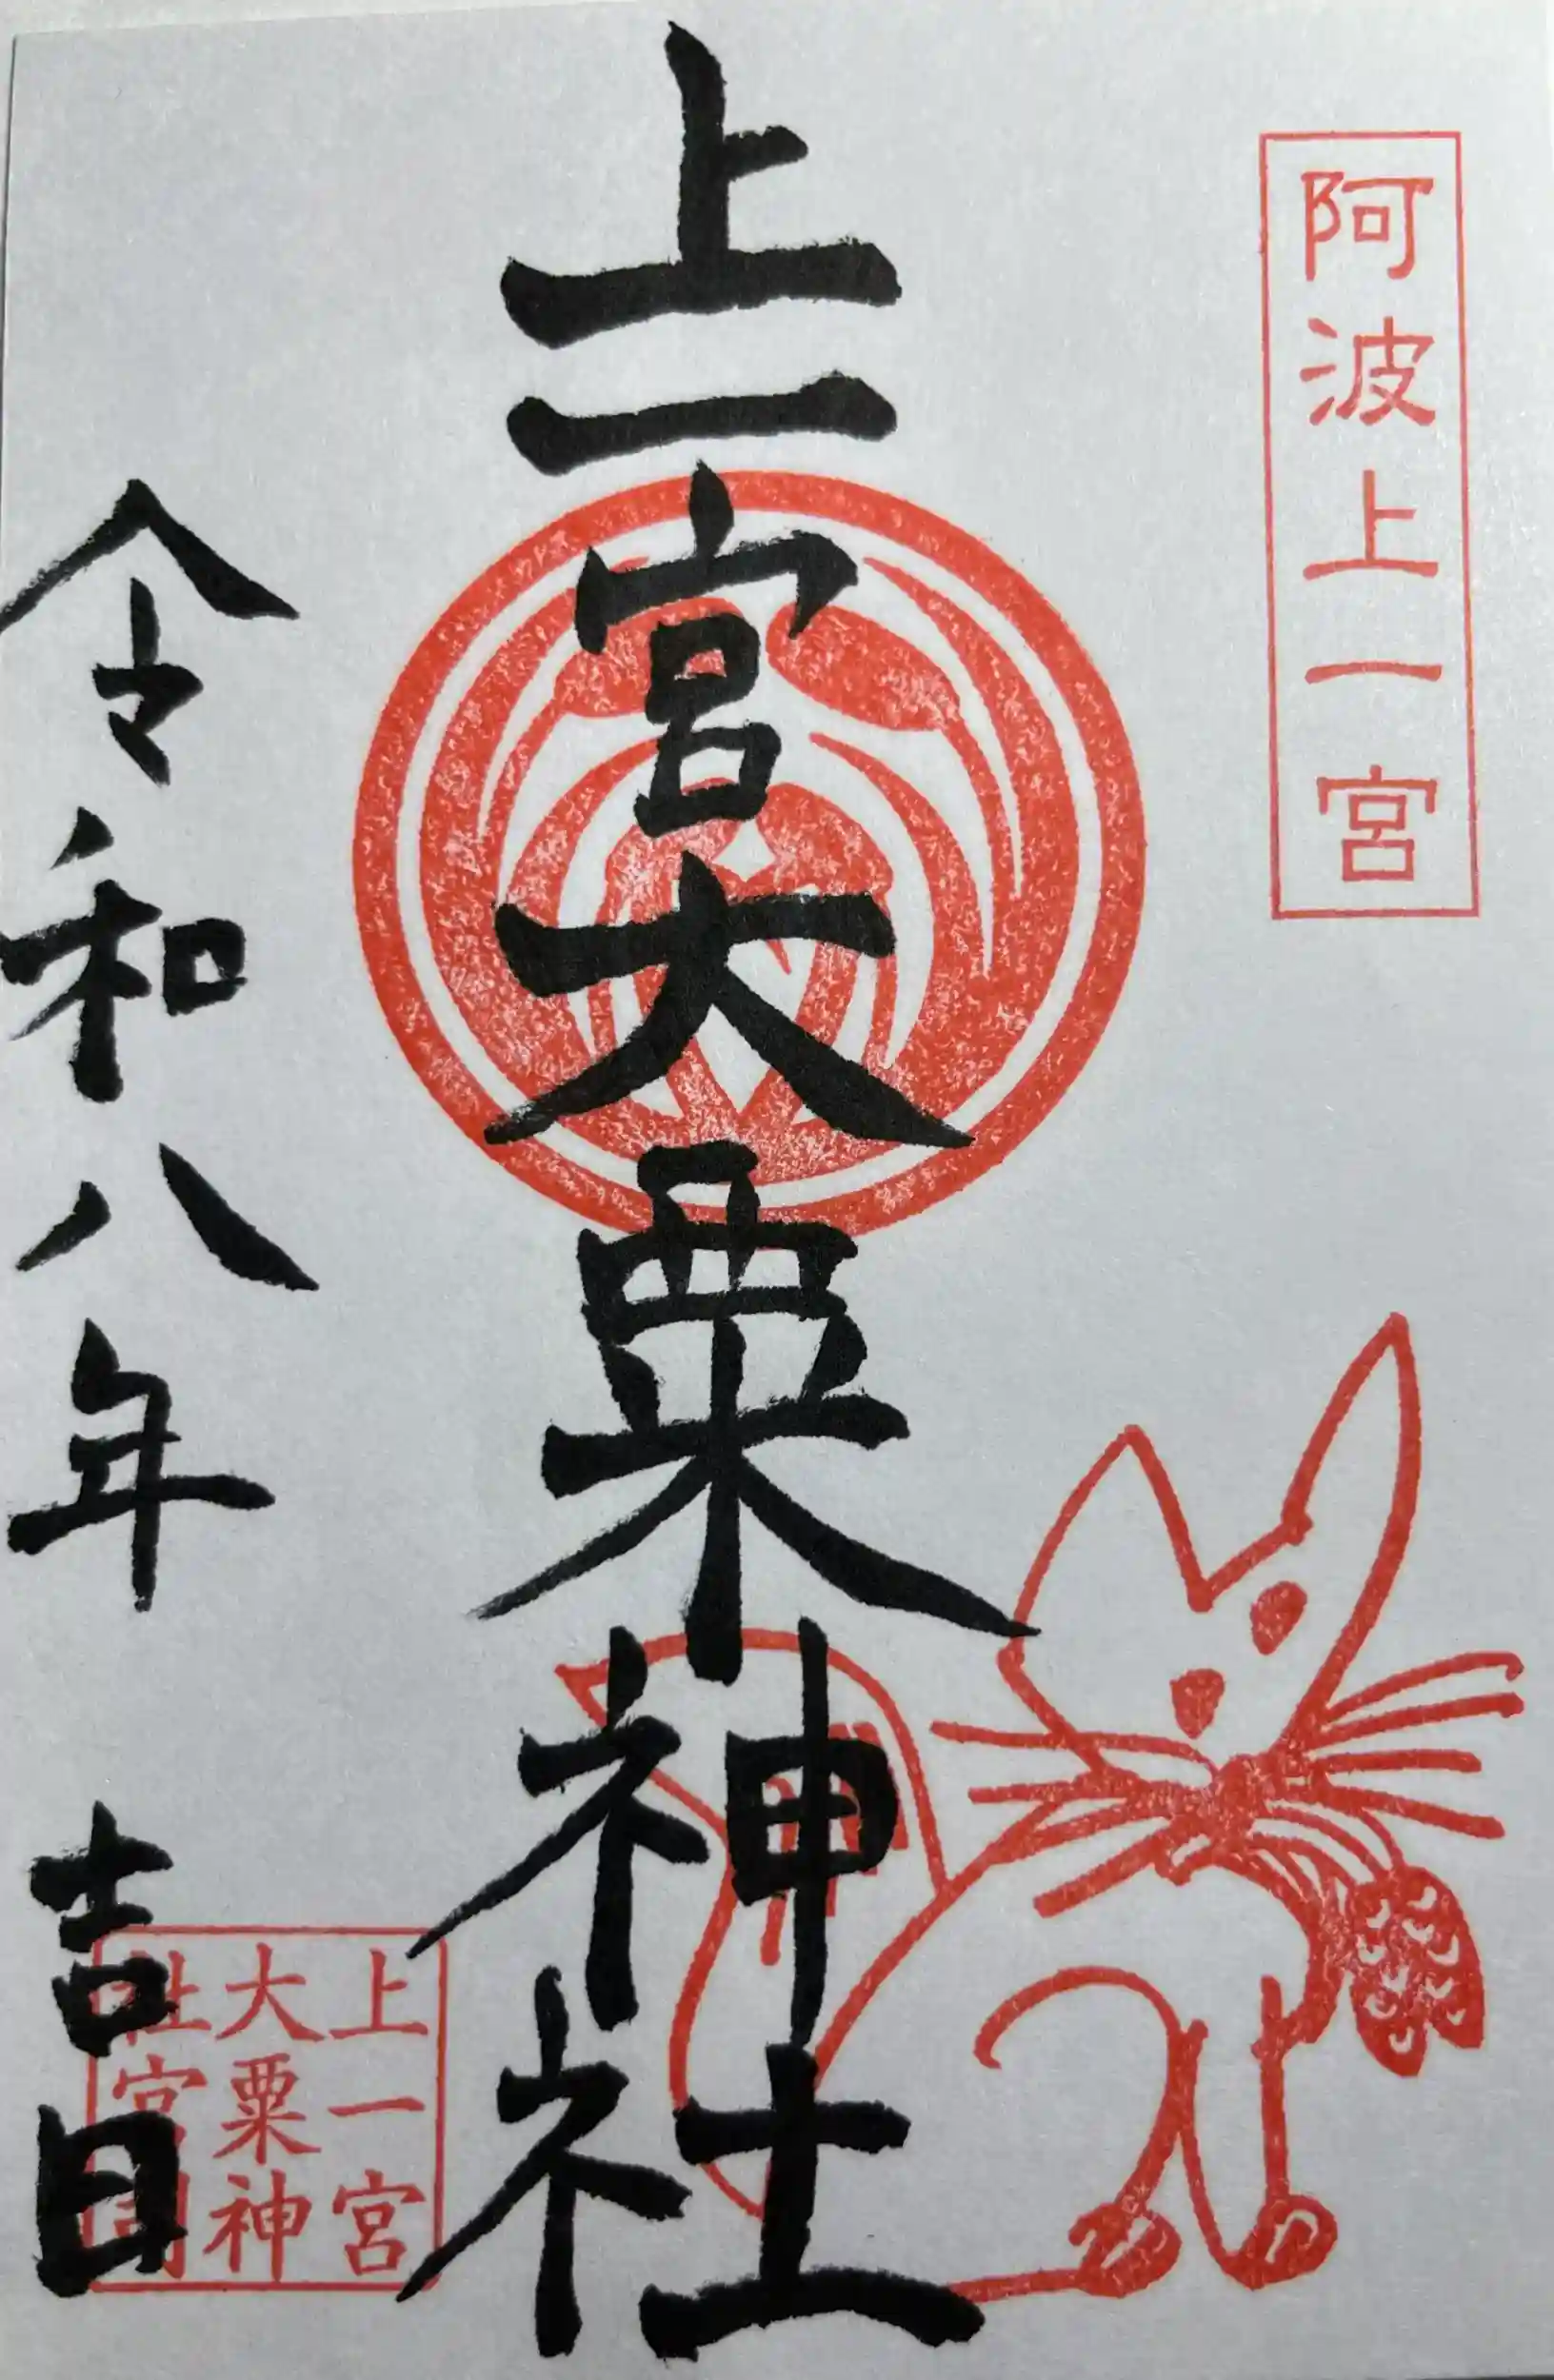 阿波上一宮
上一宮大粟神社
令和八年 吉日
上一宮
大粟神
社宮司